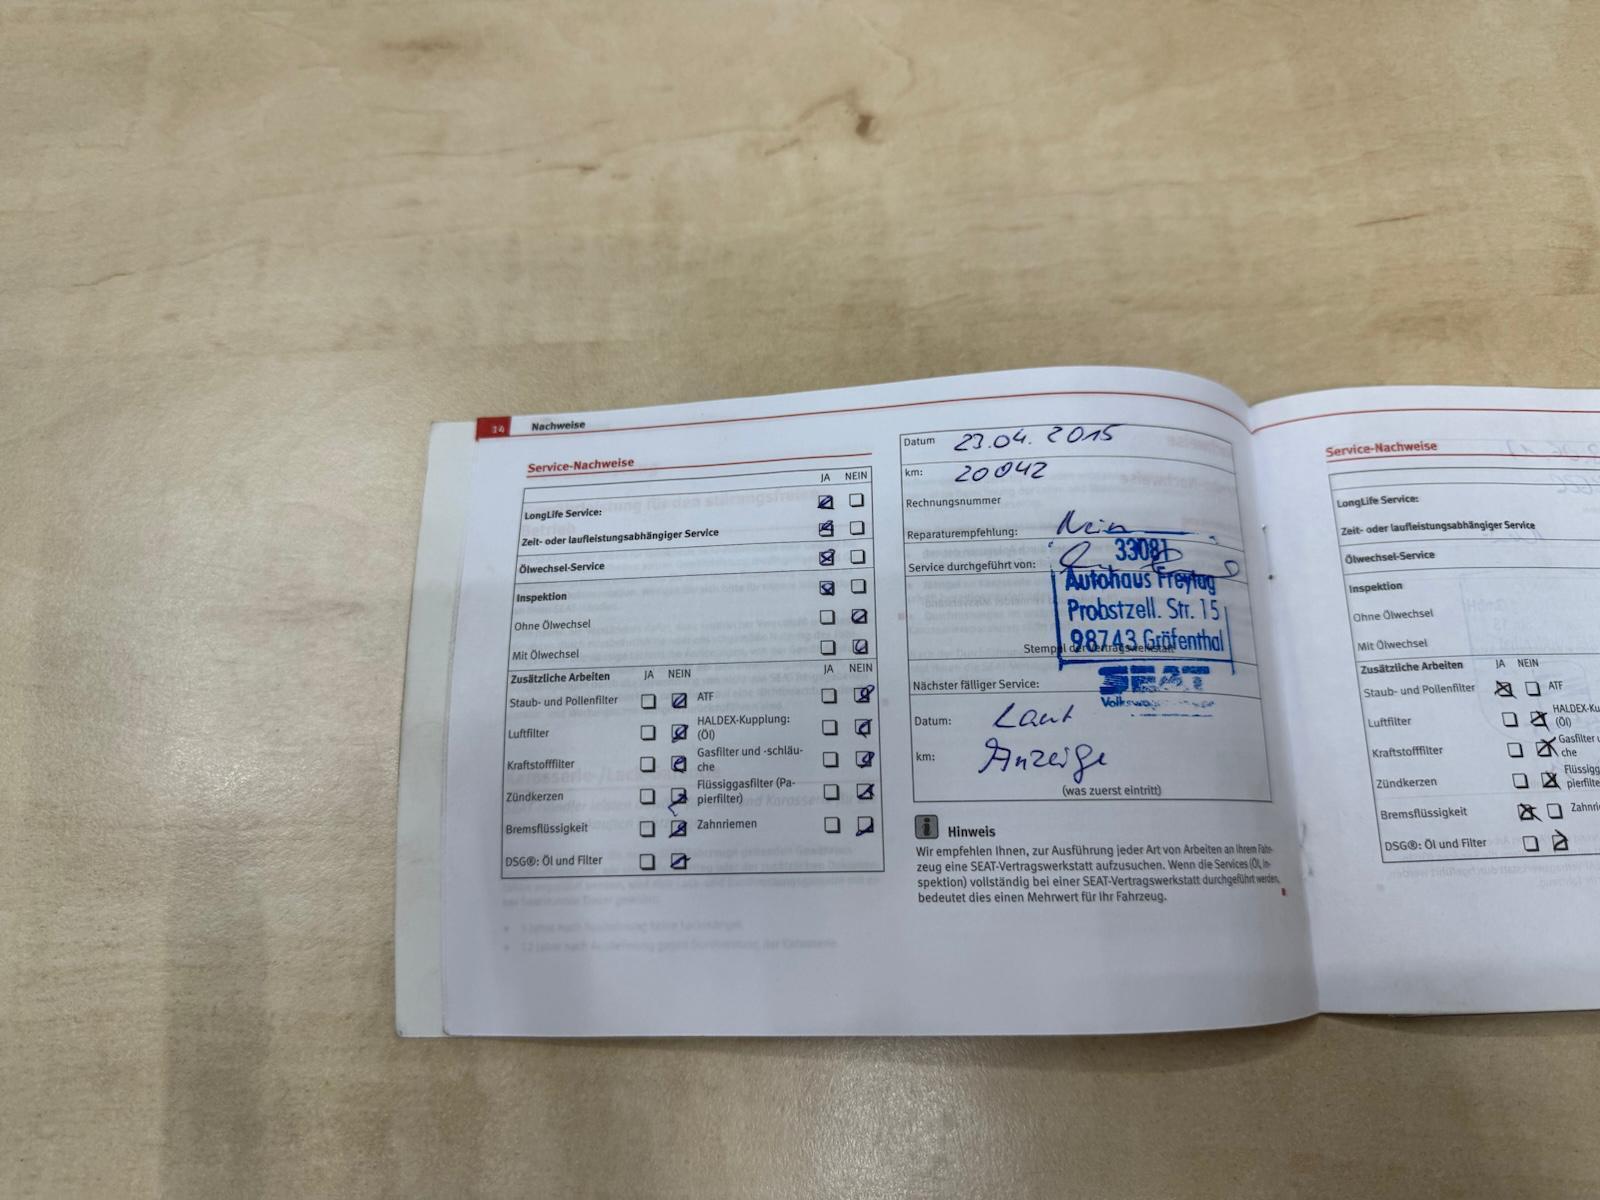 14 Nachweise
Service-Nachweise
JA NEIN
LongLife Service:
Zeit- oder laufleistungsabhängiger Service
Ölwechsel-Service
Inspektion
Ohne Ölwechsel
Mit Ölwechsel
Zusätzliche Arbeiten JA NEIN JA NEIN
Staub- und Pollenfilter ATF
Luftfilter HALDEX-Kupplung:
(Öl)
Kraftstofffilter Gasfilter und -schläu-
che
Zündkerzen Flüssiggasfilter (Pa-
pierfilter)
Bremsflüssigkeit Zahnriemen
DSG®: Öl und Filter
Datum 23.04.2015
km: 20042
Rechnungsnummer
Reparaturempfehlung: Nein
Service durchgeführt von:
33081
Autohaus Freytag
Probstzell. Str. 15
98743 Gräfenthal
Stempel der Vertragswerkstatt
SEAT
Nächster fälliger Service:
Datum: Laut
km: Anzeige
(was zuerst eintritt)
Hinweis
Wir empfehlen Ihnen, zur Ausführung jeder Art von Arbeiten an Ihrem Fahr-
zeug eine SEAT-Vertragswerkstatt aufzusuchen. Wenn die Services (Öl, In-
spektion) vollständig bei einer SEAT-Vertragswerkstatt durchgeführt werden,
bedeutet dies einen Mehrwert für Ihr Fahrzeug.
Service-Nachweise
LongLife Service:
Zeit- oder laufleistungsabhängiger Service
Ölwechsel-Service
Inspektion
Ohne Ölwechsel
Mit Ölwechsel
Zusätzliche Arbeiten JA NEIN
Staub- und Pollenfilter ATF
Luftfilter HALDEX-Ku
(Öl)
Kraftstofffilter Gasfilter u
che
Zündkerzen Flüssigg
pierfilte
Bremsflüssigkeit Zahnrie
DSG®: Öl und Filter